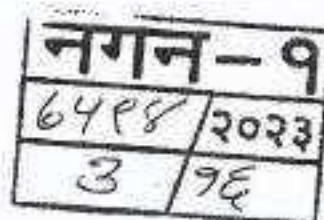 नगन-१
७५९४/२०२३
३/१६